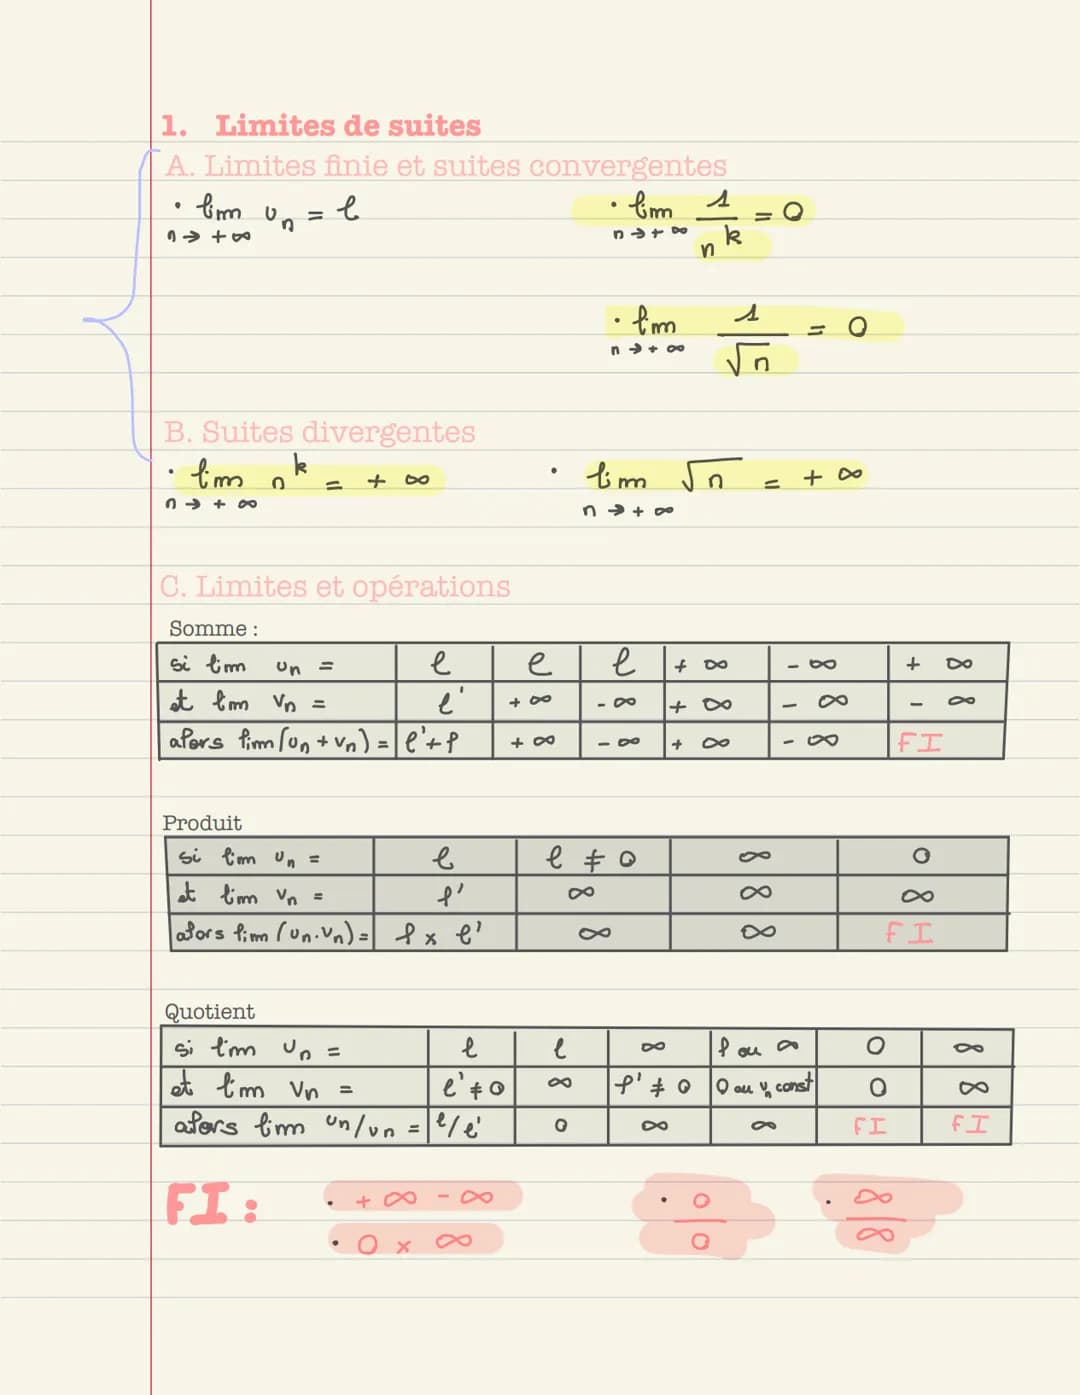 1. Limites de suites
A. Limites finie et suites convergentes
• lim uₙ = ℓ • lim 1/n^k = 0
n → +∞ n → +∞
• lim 1/√n = 0
n → +∞
B. Suites divergentes
• lim n^k = +∞ • lim √n = +∞
n → +∞ n → +∞
C. Limites et opérations
Somme :
si lim uₙ = | ℓ | ℓ | ℓ | +∞ | -∞ | +∞
et lim vₙ = | ℓ' | +∞ | -∞ | +∞ | -∞ | -∞
alors lim (uₙ + vₙ) = | ℓ'+ℓ | +∞ | -∞ | +∞ | -∞ | FI
Produit
si lim uₙ = | ℓ | ℓ ≠ 0 | ∞ | 0
et lim vₙ = | ℓ' | ∞ | ∞ | ∞
alors lim (uₙ.vₙ) = | ℓ × ℓ' | ∞ | ∞ | FI
Quotient
si lim uₙ = | ℓ | ℓ | ∞ | ℓ ou ∞ | 0 | ∞
et lim vₙ = | ℓ' ≠ 0 | ∞ | ℓ' ≠ 0 | 0 ou vₙ const | 0 | ∞
alors lim uₙ/vₙ = | ℓ/ℓ' | 0 | ∞ | ∞ | FI | FI
FI : • +∞ -∞ • 0/0 • ∞/∞
• 0 × ∞